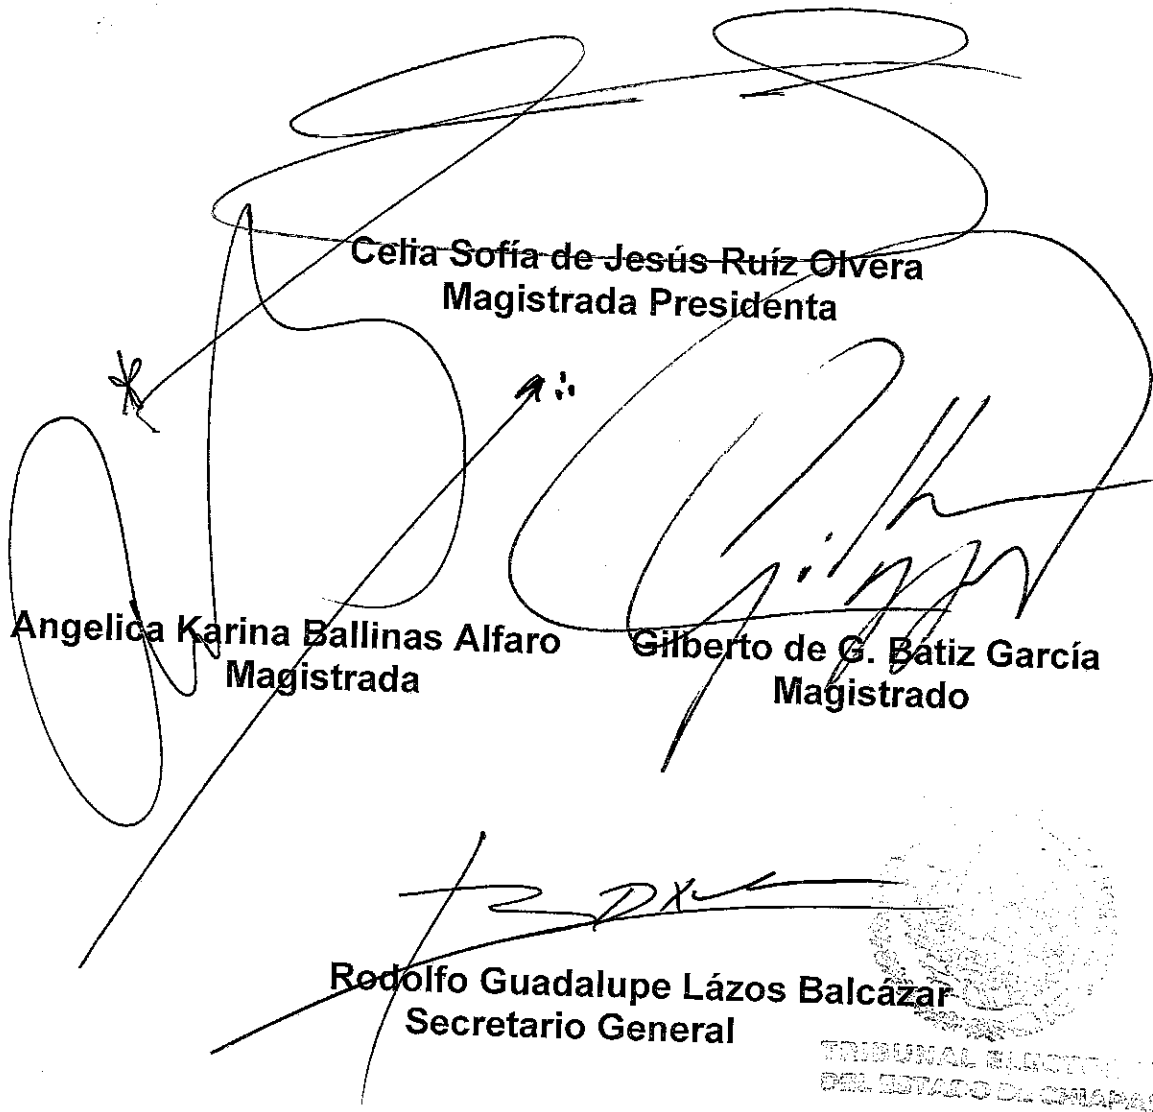 Celia Sofía de Jesús Ruíz Olvera
Magistrada Presidenta
Angelica Karina Ballinas Alfaro
Magistrada
Gilberto de G. Bátiz García
Magistrado
Rodolfo Guadalupe Lázos Balcázar
Secretario General
TRIBUNAL
DEL ESTADO DE CHIAPAS